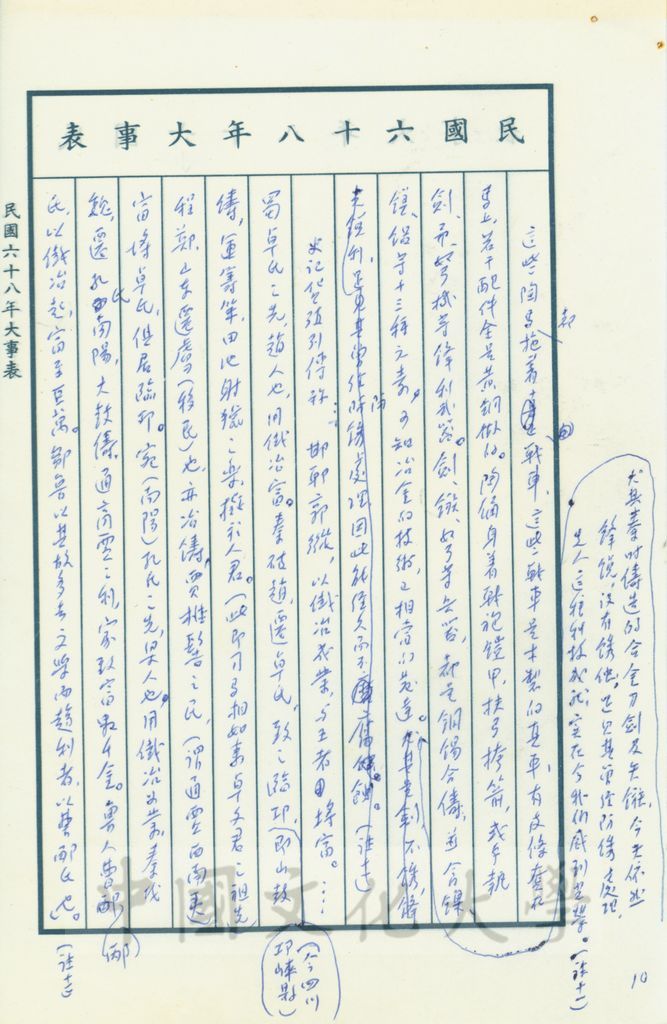 民國六十八年大事表
尤其秦時鑄造的合金刀劍及矢鏃，今天依然
鋒銳，沒有銹蝕。足見其曾經防銹處理，
先人這種科技成就，實在令我們感到光榮。（註十一）
這些陶馬都拖着戰車，這些戰車是木製的真車，有皮條套在
馬上，若干配件全是黃銅做的。陶俑身着戰袍鎧甲，挾弓挎箭，或手執
劍、矛、弩機等鋒利武器。劍、鏃、弩等兵器，都是銅錫合鑄，並含鎳
鎂、鋁等十三種元素，可知冶金的技術，已相當的先進。
史記貨殖列傳稱：邯鄲郭縱，以鐵冶成業，與王者埒富。……
蜀卓氏之先，趙人也，用鐵冶富。秦破趙，遷卓氏，致之臨邛，（今四川邛崍縣）即山鼓
鑄，運籌策，田池射獵之樂，擬於人君。（此即司馬相如妻卓文君之祖先）
程鄭，山東遷虜（移民）也，亦冶鑄，賈椎髻之民，（謂通賈西南夷）
富埒卓氏，俱居臨邛。宛（南陽）孔氏之先，梁人也，用鐵冶為業，秦伐
魏，遷孔氏南陽，大鼓鑄，通商賈之利，家致富數千金。魯人曹邴（邴）
氏，以鐵冶起，富至巨萬。鄒魯以其故多去文學而趨利者，以曹邴氏也。（註十二）
民國六十八年大事表
10
中國文化大學